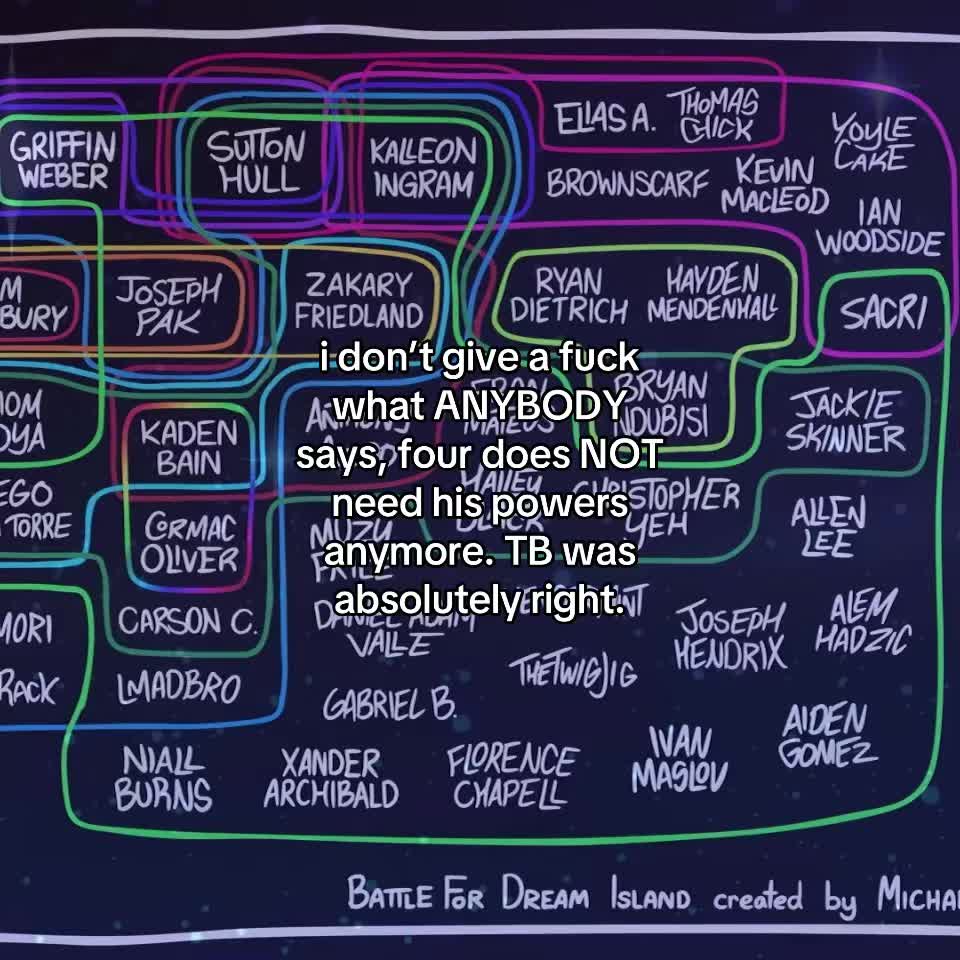 ELIAS A.
THOMAS
CHICK
YOYLE
CAKE
GRIFFIN
WEBER
SUTTON
HULL
KALLEON
INGRAM
BROWNSCARF
KEVIN
MACLEOD
IAN
WOODSIDE
M
BURY
JOSEPH
PAK
ZAKARY
FRIEDLAND
RYAN
DIETRICH
HAYDEN
MENDENHALL
SACRI
i don’t give a fuck
what ANYBODY
says, four does NOT
need his powers
anymore. TB was
absolutely right.
OM
OYA
KADEN
BAIN
BRYAN
NDUBISI
JACKIE
SKINNER
EGO
TORRE
CORMAC
OLIVER
CHRISTOPHER
YEH
ALLEN
LEE
MORI
CARSON C.
DANIEL ADAM
VALLE
JOSEPH
HENDRIX
ALEM
HADZIC
RACK
LMADBRO
GABRIEL B.
THETWIGJIG
NIALL
BURNS
XANDER
ARCHIBALD
FLORENCE
CHAPELL
IVAN
MASLOV
AIDEN
GOMEZ
BATTLE FOR DREAM ISLAND created by MICHA